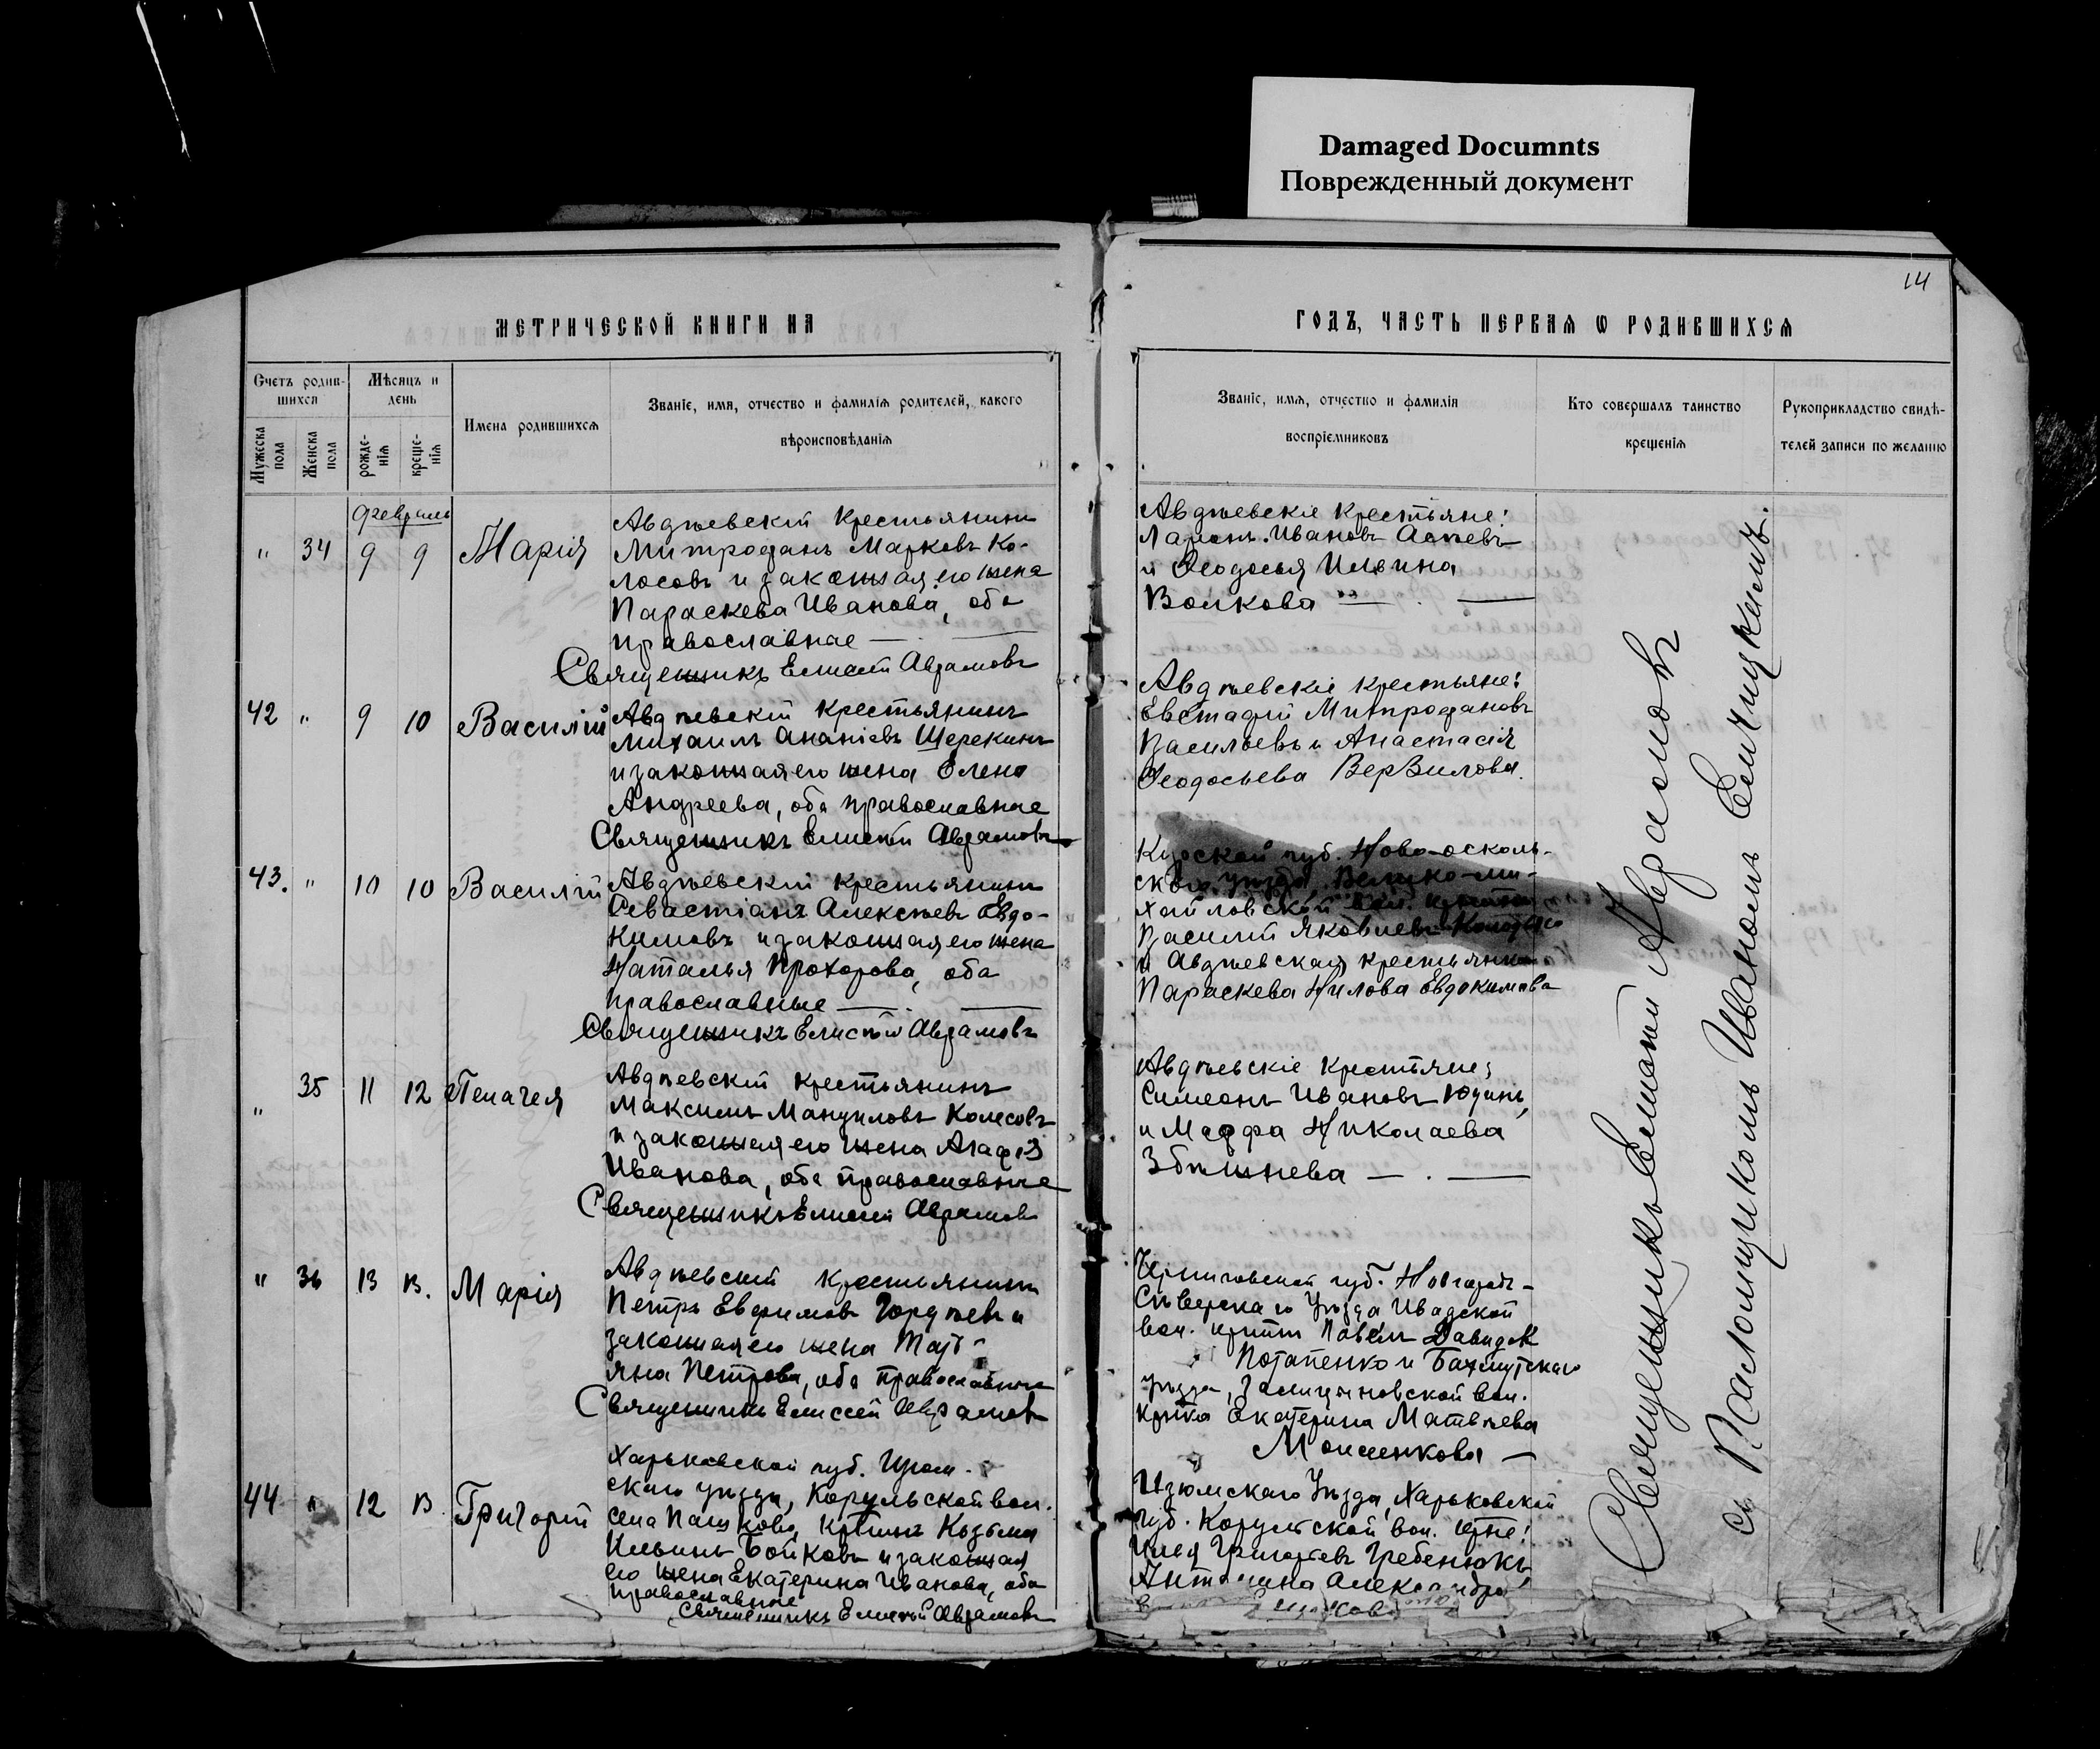 Damaged Documnts
Поврежденный документ
14
МЕТРИЧЕСКОЙ КНИГИ НА
ГОДЪ, ЧАСТЬ ПЕРВАЯ Ѡ РОДИВШИХСЯ
Счетъ родив-
шихся
Мужеска
пола
Женска
пола
Мѣсяцъ и
день
рожде-
нія
креще-
нія
Имена родившихся
Званіе, имя, отчество и фамилія родителей, какого
вѣроисповѣданія
Званіе, имя, отчество и фамилія
воспріемниковъ
Кто совершалъ таинство
крещенія
Рукоприкладство свидѣ-
телей записи по желанію
Февраль
" 34 9 9 Марія
Авдѣевскій крестьянинъ
Митрофанъ Марковъ Ко-
лосовъ и законная его жена
Параскева Иванова, оба
православные
Священникъ Елисей Аврамовъ
Авдѣевскіе крестьяне:
Ларіонъ Ивановъ
и Ѳеодосья Ильина
Волкова
42 " 9 10 Василій
Авдѣевскій крестьянинъ
Михаилъ Ананіевъ Щерекинъ
и законная его жена Елена
Андреева, оба православные
Священникъ Елисей Аврамовъ
Авдѣевскіе крестьяне:
Евстафій Митрофановъ
Васильевъ и Анастасія
Ѳеодосьева
43. " 10 10 Василій
Авдѣевскій крестьянинъ
Севастіанъ Алексѣевъ Евдо-
кимовъ и законная его жена
Наталья Прохорова, оба
православные
Священникъ Елисей Аврамовъ
Курской губ. Ново-осколь-
скаго уѣзда, Велико-ми-
хайловской вол.
Василій Яковлевъ
и Авдѣевская крестьянка
Параскева Нилова Евдокимова
" 35 11 12 Пелагея
Авдѣевскій крестьянинъ
Максимъ Мануиловъ Колесовъ
и законная его жена
Иванова, оба православные
Священникъ Елисей Аврамовъ
Авдѣевскіе крестьяне:
Симеонъ Ивановъ Юдинъ
и Марфа Николаева
" 36 13 13. Марія
Авдѣевский крестьянинъ
Петръ Евфимовъ Гордѣевъ и
законная его жена Тать-
яна Петрова, оба православные
Священникъ Елиссей Аврамовъ
Черниговской губ. Новгородъ-
Сѣверскаго Уѣзда
вол. Павелъ Давидовъ
Потапенко и Бахмутскаго
уѣзда, вол.
Екатерина Матвѣева
Моисеенкова
44 " 12 13. Григорій
Харьковской губ. Изюм-
скаго уѣзда, Корульской вол.
села Пашково, Козьма
Ильинъ Бойковъ и законная
его жена Екатерина Иванова, оба
православные
Священникъ Елисей Аврамовъ
Изюмскаго Уѣзда, Харьковской
губ. Корульской вол.
Илья Григорьевъ Гребенюкъ
Священникъ Елисей Аврамовъ
съ Псаломщикомъ Иваномъ